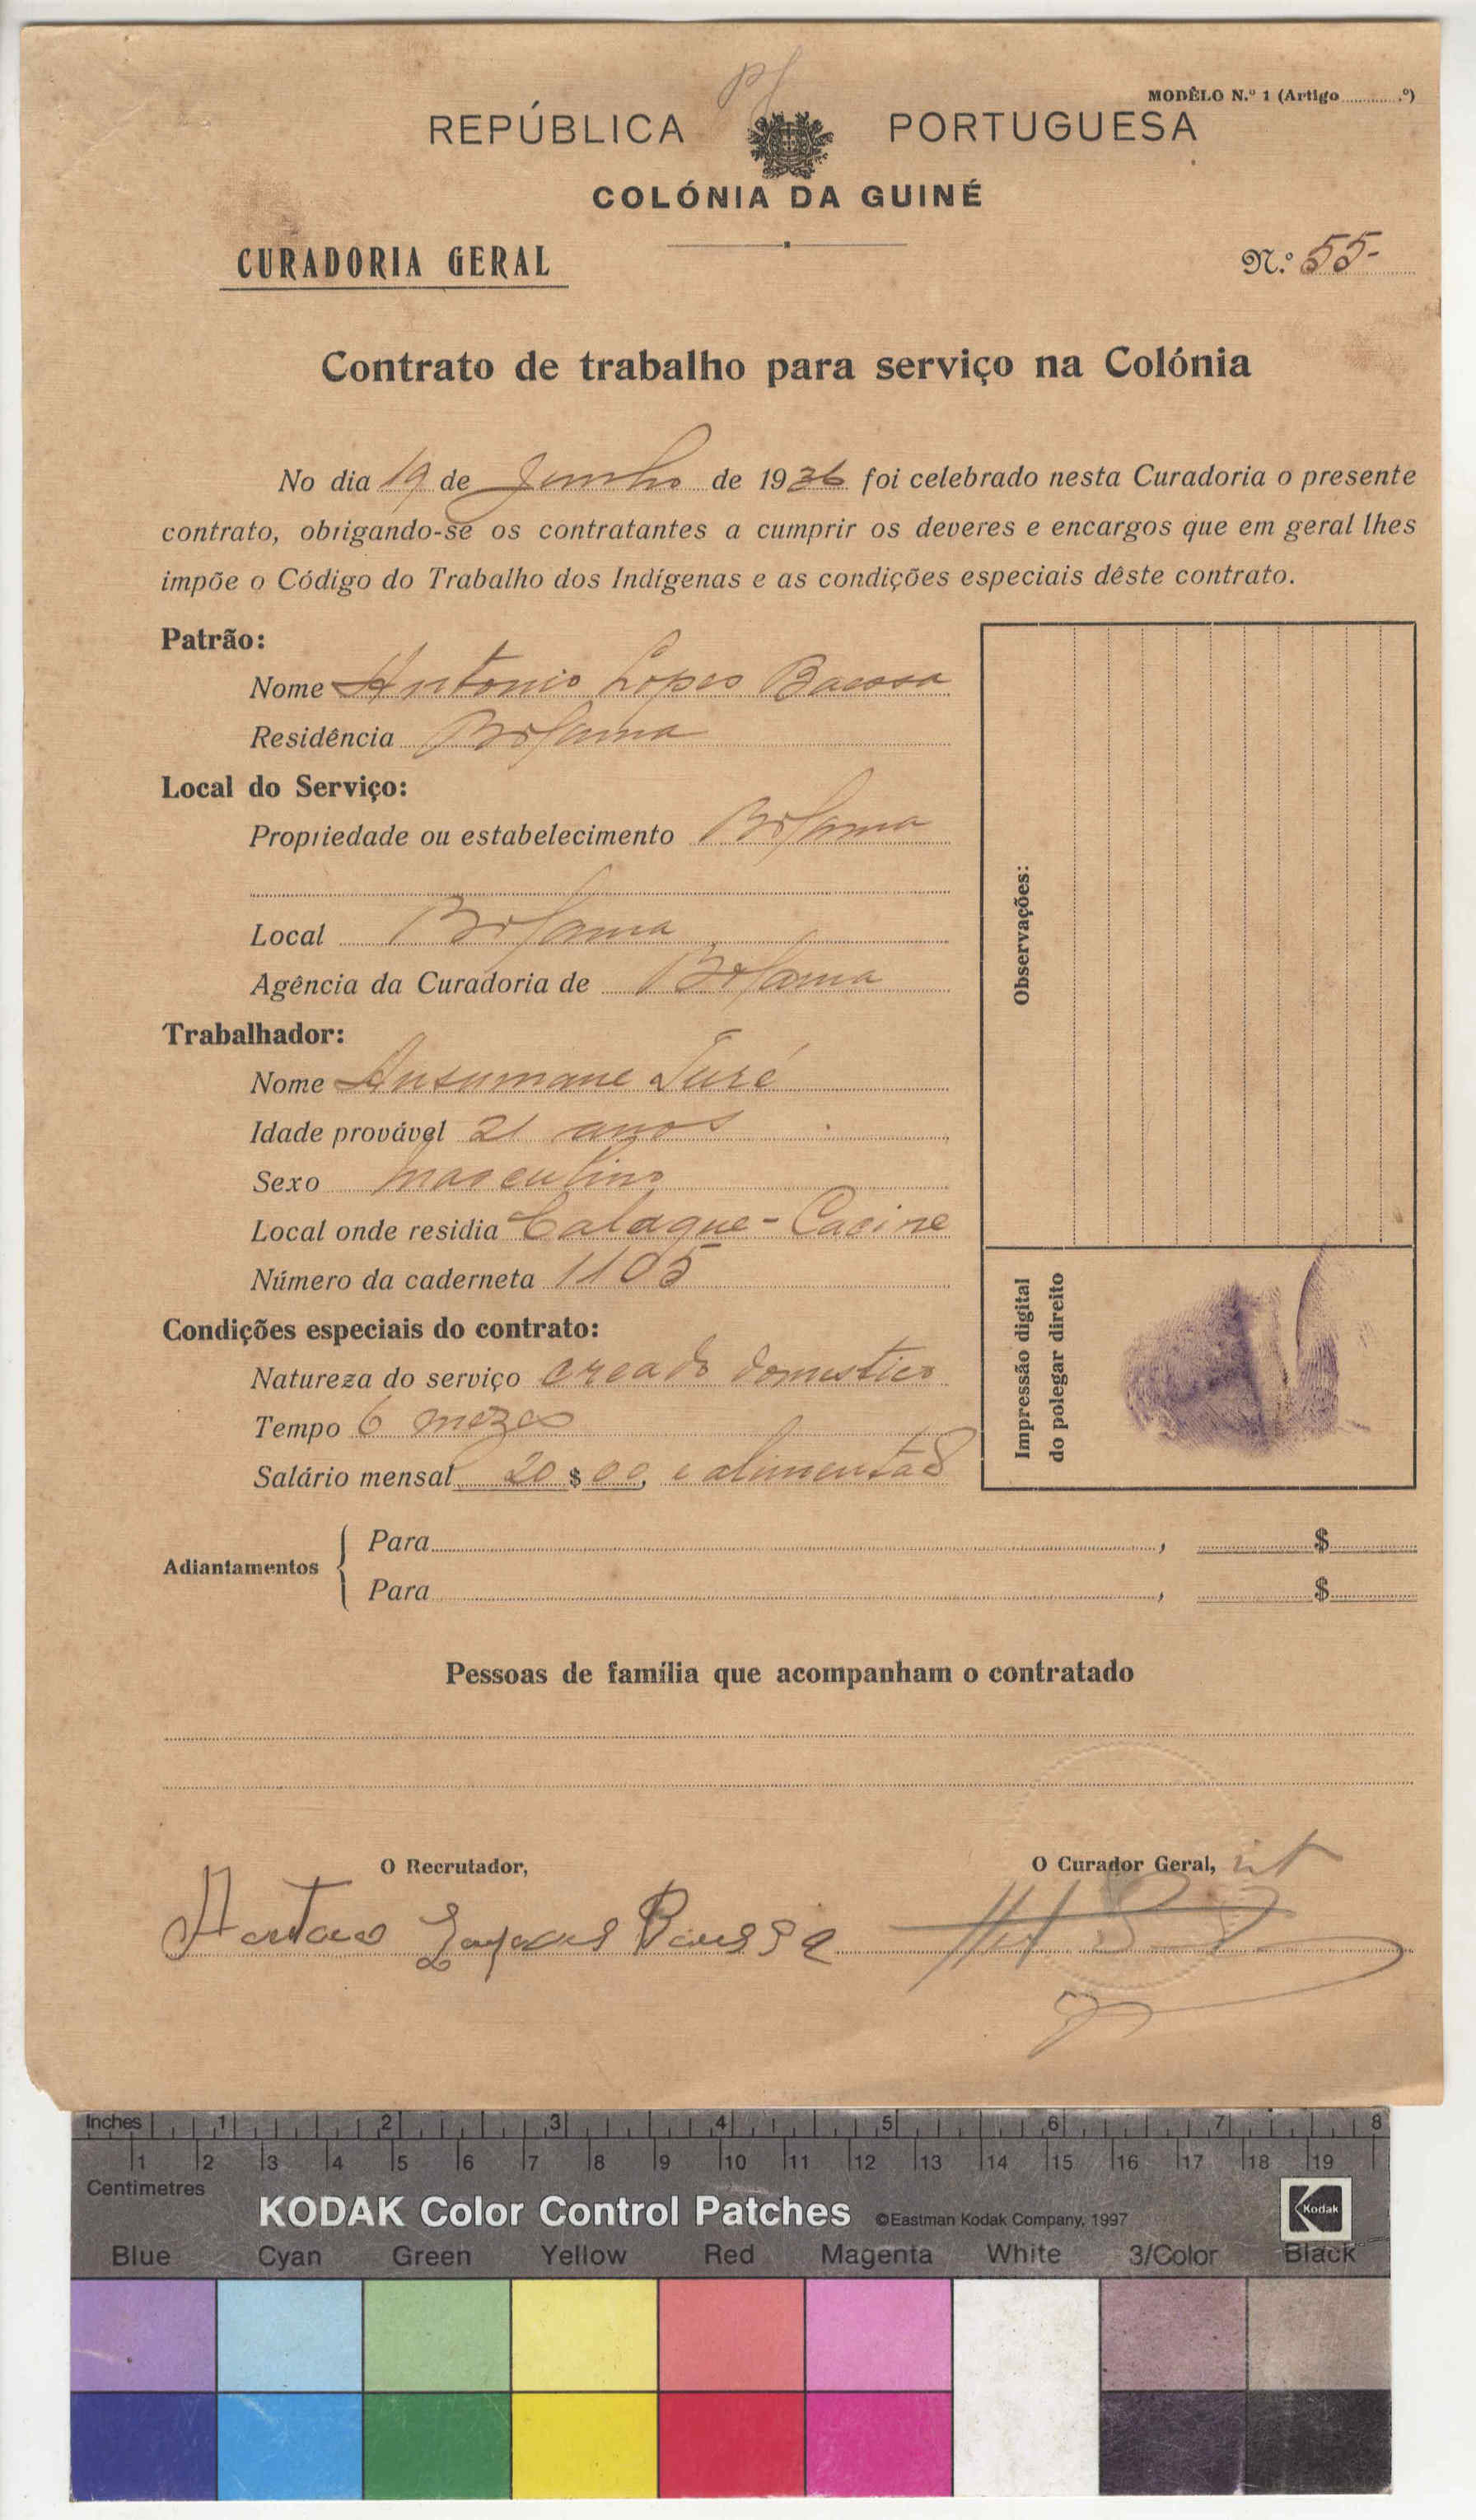 MODÊLO N.º 1 (Artigo ............º)
REPÚBLICA PORTUGUESA
COLÓNIA DA GUINÉ
CURADORIA GERAL
N.º 55-
Contrato de trabalho para serviço na Colónia
No dia 19 de Junho de 1936 foi celebrado nesta Curadoria o presente
contrato, obrigando-se os contratantes a cumprir os deveres e encargos que em geral lhes
impõe o Código do Trabalho dos Indígenas e as condições especiais dêste contrato.
Patrão:
Nome Antonio Lopes
Residência Bolama
Local do Serviço:
Propriedade ou estabelecimento Bolama
Local Bolama
Agência da Curadoria de Bolama
Trabalhador:
Nome Ansumane Turé
Idade provável 21 anos
Sexo masculino
Local onde residia Calaque - Cacine
Número da caderneta 1105
Condições especiais do contrato:
Natureza do serviço creado domestico
Tempo 6 mezes
Salário mensal 20$00, e alimentaç
Observações:
Impressão digital
do polegar direito
Adiantamentos
Para , $
Para , $
Pessoas de família que acompanham o contratado
O Recrutador,
O Curador Geral, int
Inches 1 2 3 4 5 6 7 8
1 2 3 4 5 6 7 8 9 10 11 12 13 14 15 16 17 18 19
Centimetres
KODAK Color Control Patches ©Eastman Kodak Company, 1997
Kodak
Blue Cyan Green Yellow Red Magenta White 3/Color Black